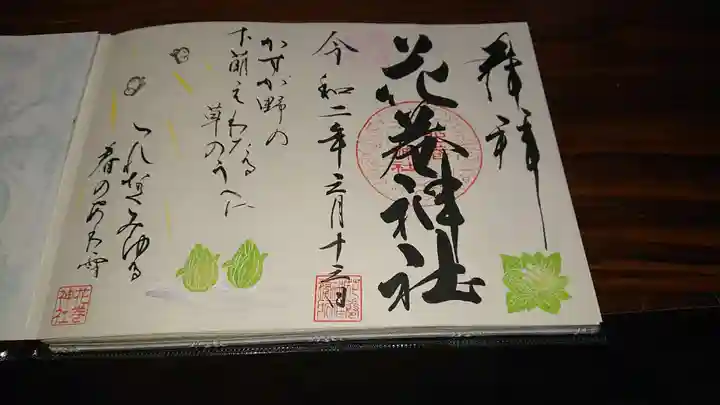 奉拝
花巻神社
令和二年三月十三日
かすが野の
下萌えわたる
草のうへに
つれなくみゆる
春のあわ雪
花巻
神社